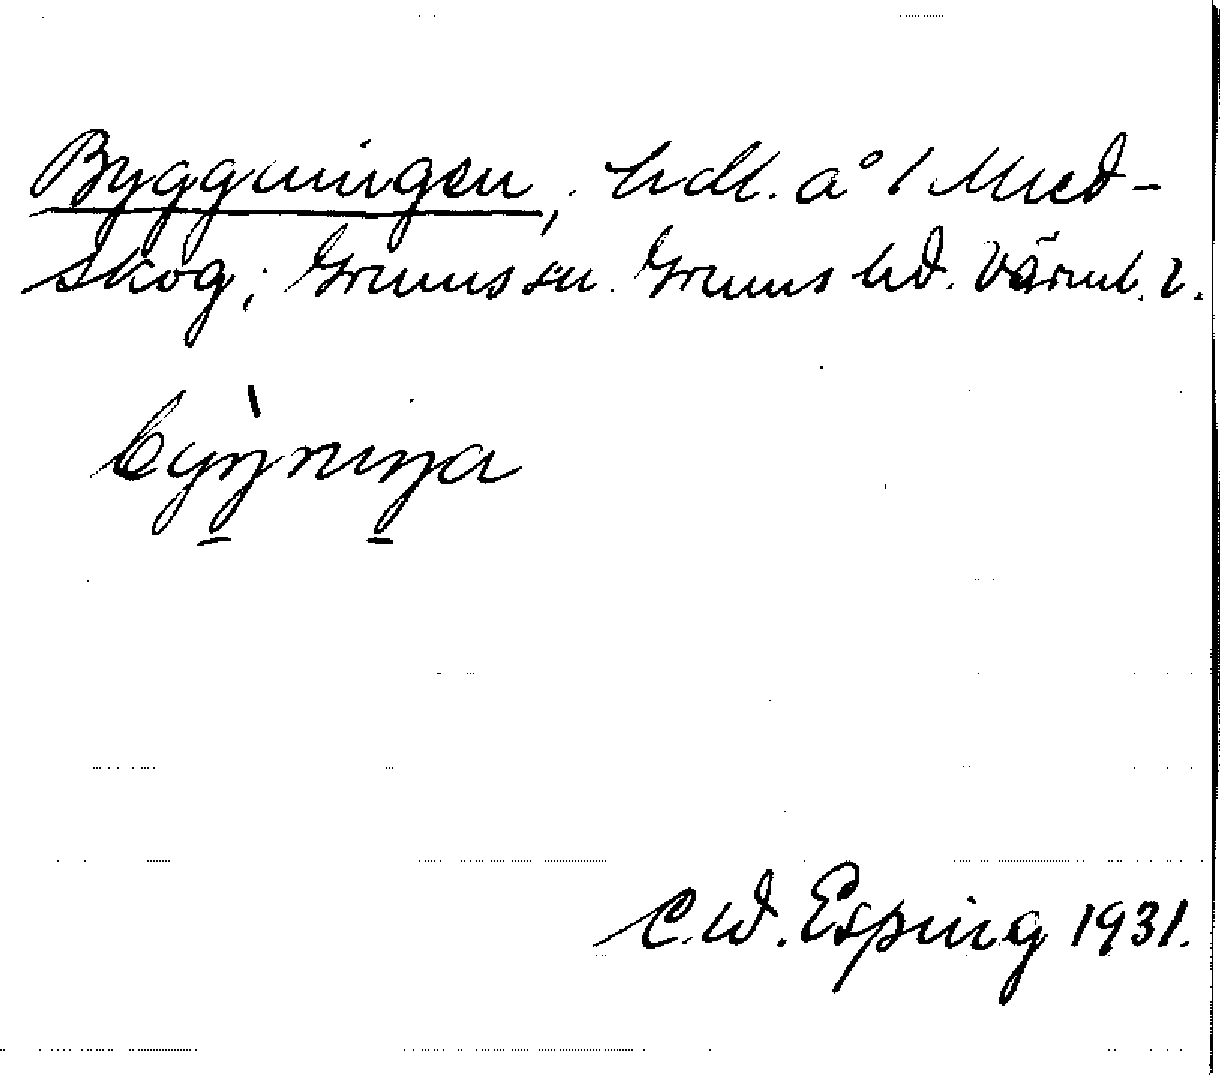 Byggningen, hdl. å 1 Med-
skog; Grums sn. Grums hd. Värml. l.
bỳŋniŋa
C.W. Esping 1931.